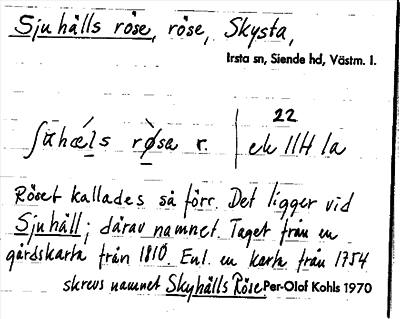 Sjuhälls röse, röse, Skysta,
Irsta sn, Siende hd, Västm. l.
22
ʃu̵hæ̀ls rø̀sa r. ek 11H 1a
Röset kallades så förr. Det ligger vid
Sjuhäll; därav namnet. Taget från en
gårdskarta från 1810. Enl. en karta från 1754
skrevs namnet Skyhälls Röse. Per-Olof Kohls 1970